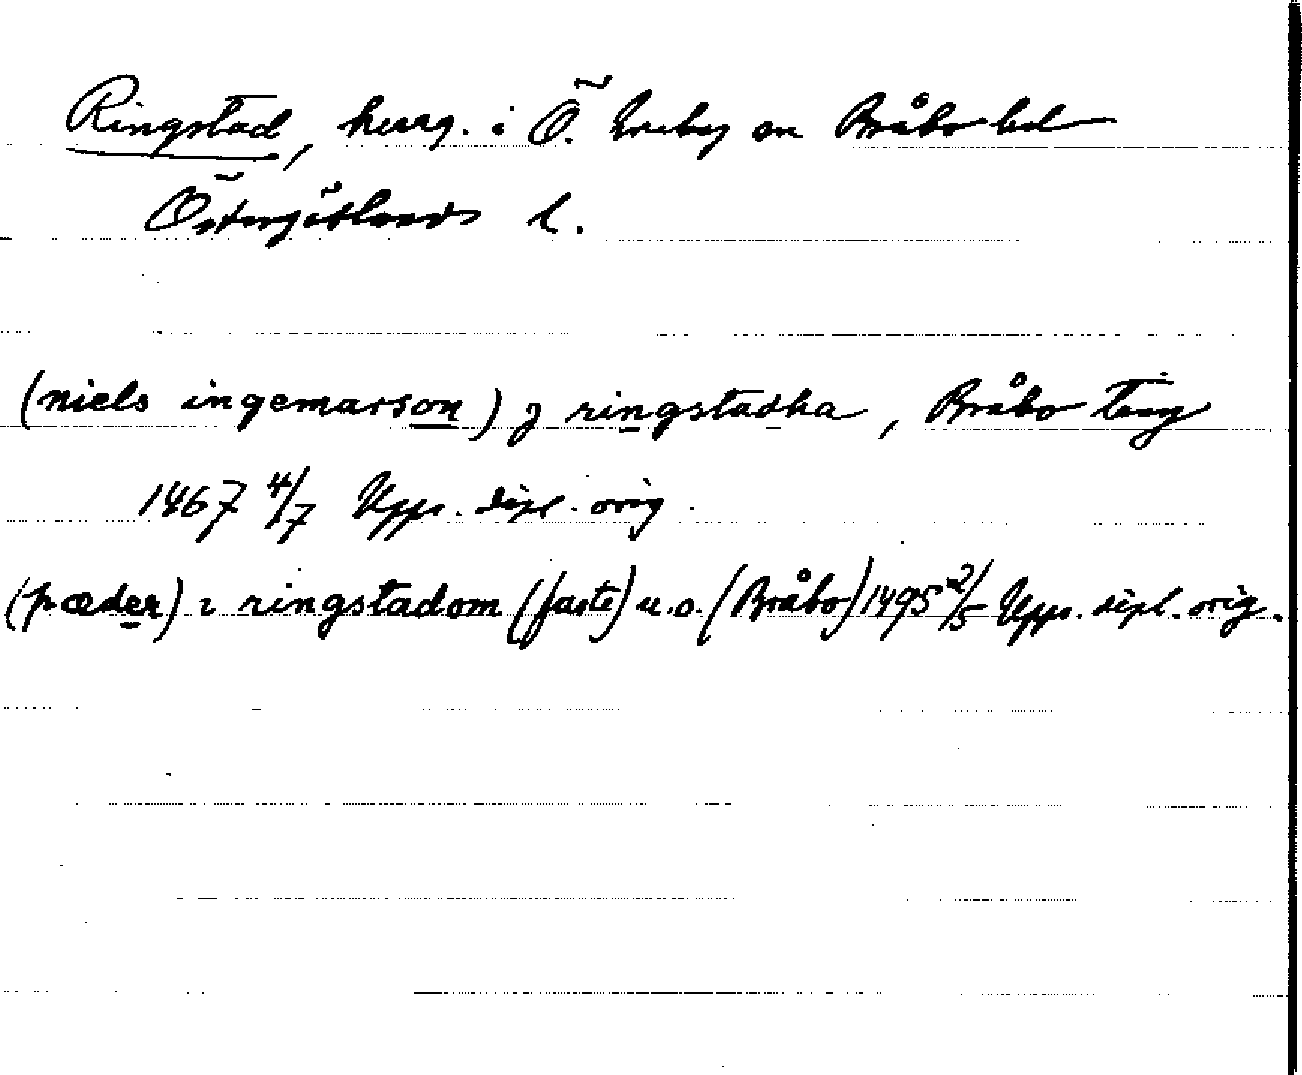 Ringstad, herrg. i Ö. Eneby sn Bråbo hd
Östergötlands l.
(niels ingemarson) j ringstadha, Bråbo ting
1467 4/7 Upps. dipl. orig.
(pæder) i ringstadom (faste) u.o. (Bråbo) 1495 2/5 Upps. dipl. orig.